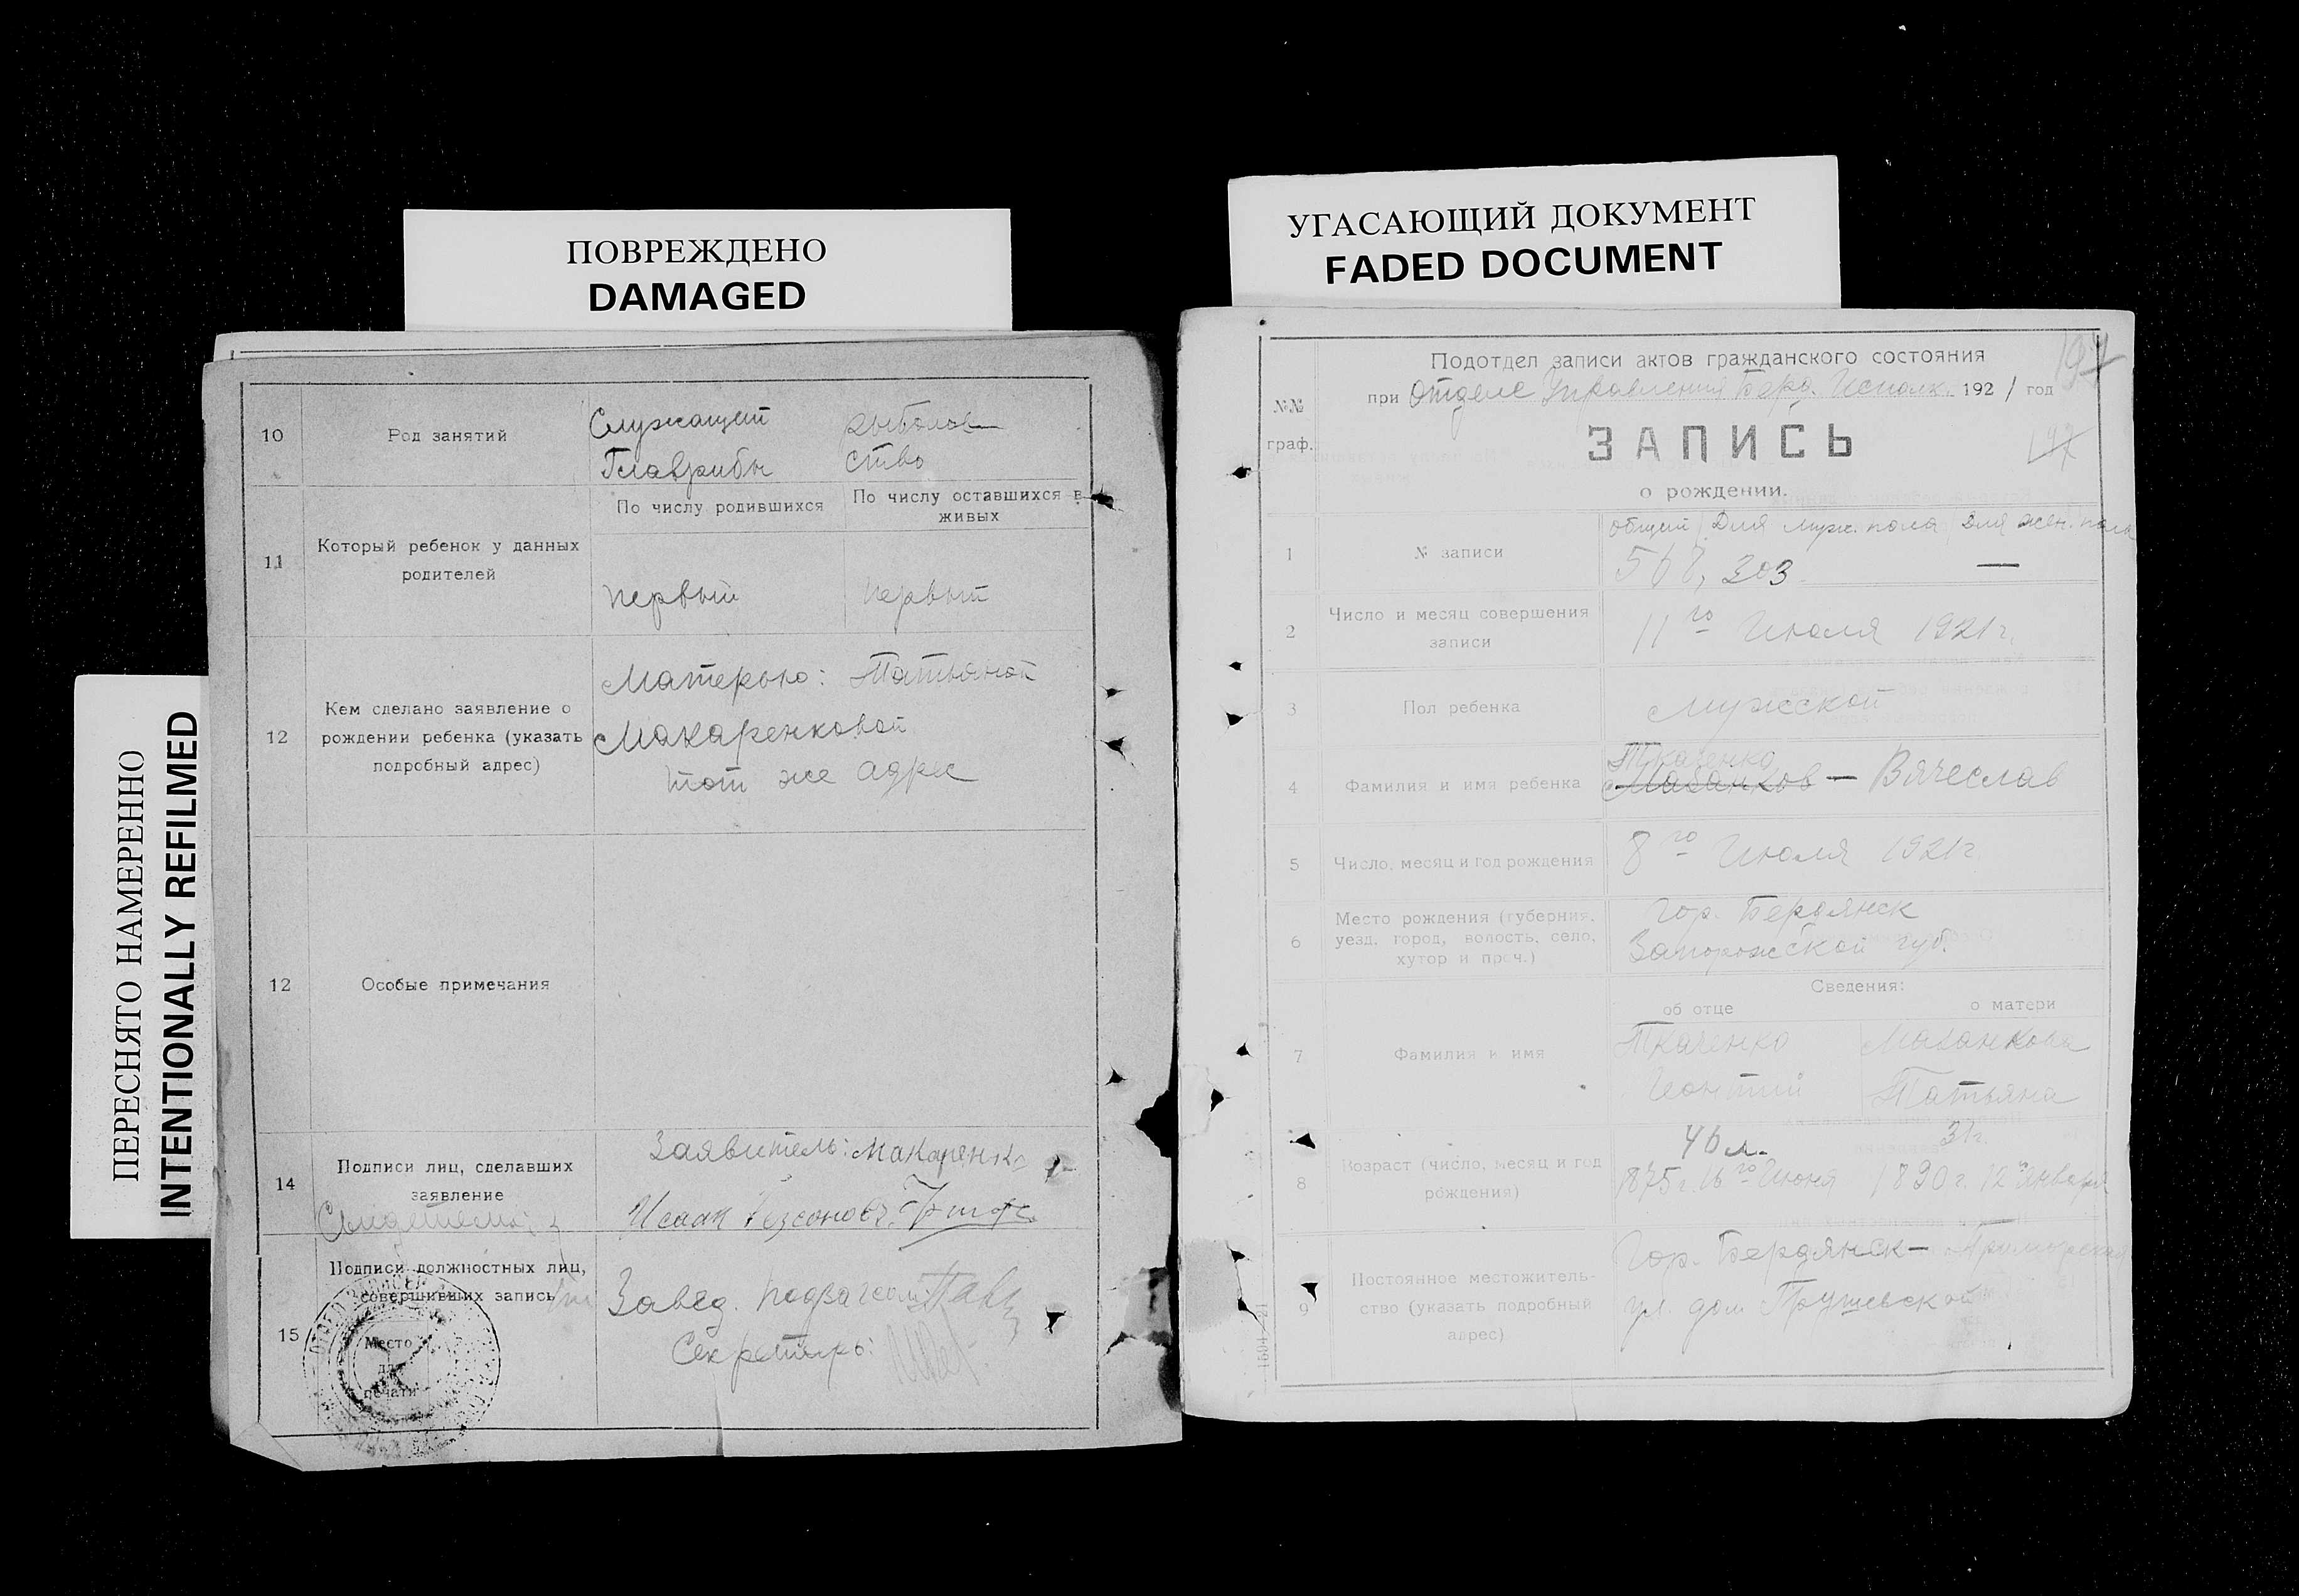 ПОВРЕЖДЕНО
DAMAGED
ПЕРЕСНЯТО НАМЕРЕННО
INTENTIONALLY REFILMED
10
Род занятий
Служащий
Главрыбы
рыболов-
ство
11
Который ребенок у данных
родителей
По числу родившихся
По числу оставшихся в
живых
первый
первый
12
Кем сделано заявление о
рождении ребенка (указать
подробный адрес)
Матерью: Татьяной
Макаренковой
тот же адрес
12
Особые примечания
14
Подписи лиц, сделавших
заявление
Свидетели:
Заявитель: Макаренко
Исаак
15
Подписи должностных лиц,
совершивших запись
Место
для
печати
Завед. подзагсом
Секретарь:
УГАСАЮЩИЙ ДОКУМЕНТ
FADED DOCUMENT
197
№№
граф.
Подотдел записи актов гражданского состояния
при Отделе Управления Берд. Исполк. 1921 год
ЗАПИСЬ
о рождении.
147
1
№ записи
общий Для муж. пола, для жен. пола
567, 303 —
2
Число и месяц совершения
записи
11го Июля 1921 г.
3
Пол ребенка
Мужской
4
Фамилия и имя ребенка
Ткаченко
Мазанков — Вячеслав
5
Число, месяц и год рождения
8го Июля 1921 г
6
Место рождения (губерния,
уезд, город, волость, село,
хутор и проч.)
Гор. Бердянск
Запорожской губ.
Сведения:
об отце
о матери
7
Фамилия и имя
Ткаченко
Мазанкова
Татьяна
8
Возраст (число, месяц и год
рождения)
46 л.
1875 г. 16го Июня
31 г.
1890 г. 12 Января
9
Постоянное местожитель-
ство (указать подробный
адрес)
Гор. Бердянск— Приморская
ул. дом Трушевской
1594—21